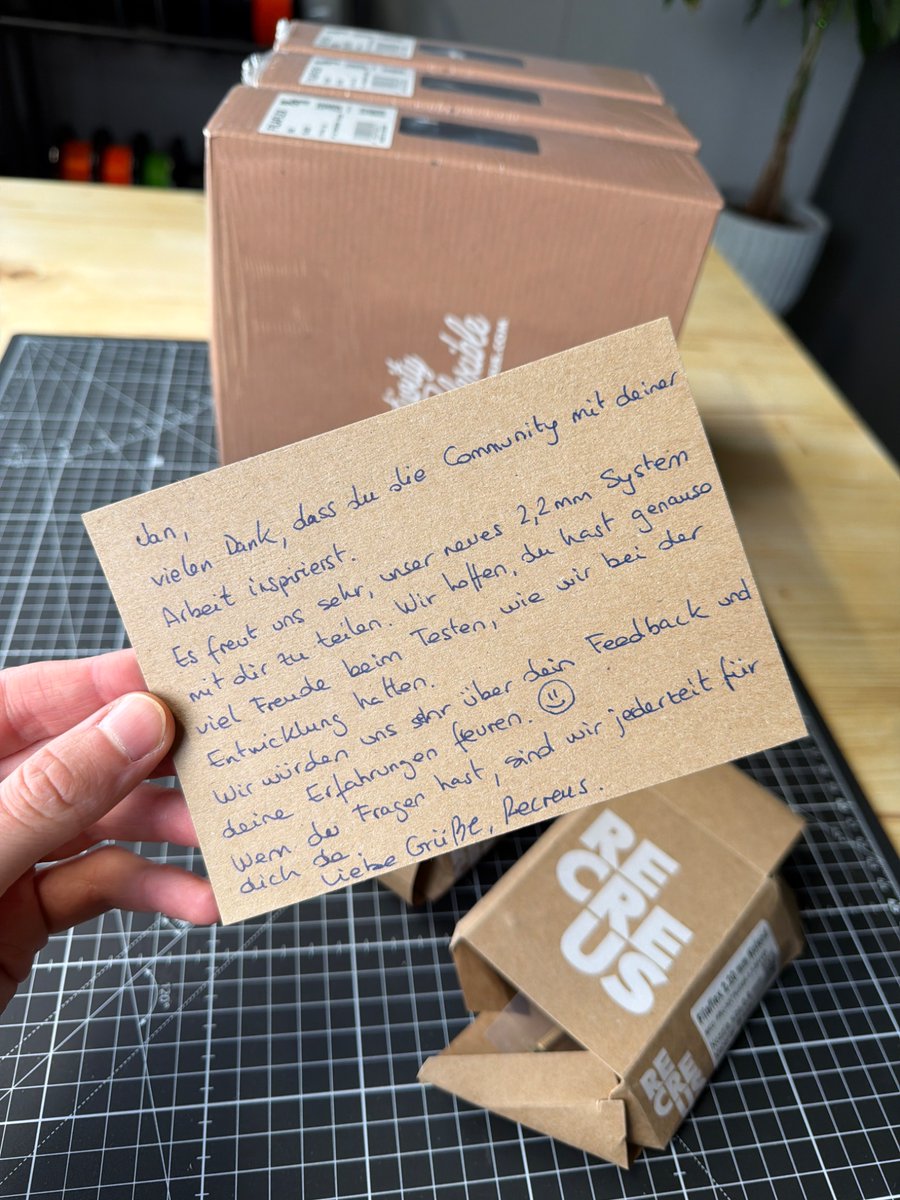 Jan,
vielen Dank, dass du die Community mit deiner
Arbeit inspirierst.
Es freut uns sehr, unser neues 2,2mm System
mit dir zu teilen. Wir hoffen, du hast genauso
viel Freude beim Testen, wie wir bei der
Entwicklung hatten.
Wir würden uns sehr über dein Feedback und
deine Erfahrungen feuren.
Wenn du Fragen hast, sind wir jederzeit für
dich da.
Liebe Grüße, Recreus.
RE
CRE
US
RE
CRE
US